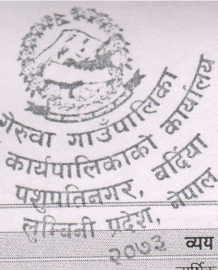 गेरुवा गाउँपालिका
कार्यपालिकाको कार्यालय
पशुपतिनगर, बर्दिया
लुम्बिनी प्रदेश, नेपाल
२०७३
व्यय